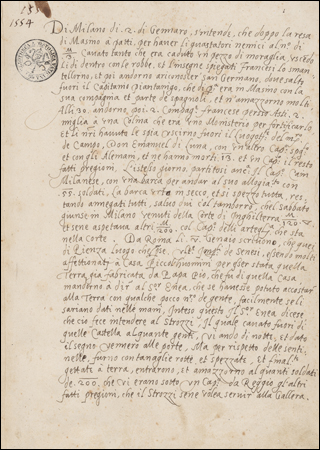 1554
Di Milano di .2. di Gennaro, s'intende, che doppo la resa
di Masino à patti, per haver li guastatori nemici al nº. di
Cavato tanto che era caduto un pezzo di moraglia, usciti
di dentro con le robbe, et l'insegne spiegati Francesi lo sman
tellorno, et poi andorno à San Germano, dove usciti
fuori il Capitano che era in Masino con la
sua compagnia et parte de spagnoli, et n'amazzorno molti
Alli .30. andorno, poi .2. Compagˡ. francesi persso Asti .2.
miglia à una Colma che era uno Monisterio per fortificarlo
et li nri havuto le spia uscirno fuori il
de Campo, Don Emanuel di Luna, con un'altro Capº. spagˡ.
et con gli Alemani, et ne hanno morti .13. et un Capº. il resto
fatti pregioni. L'istesso giorno partitosi
Milanese, con una barca per andar al suo con
55. soldati, La barca urtò in secco, et si spezzò tutta, res,
tando annegati tutti, salvo dui col tamborro, che 'l sabbato
giunse in Milano venuti della Corte di Inghilterra
et sene aspetava altri 200. col Capº. dell' che sta
nella Corte. Da Roma li scrivino, che quei
di Pienza luogo de senesi, sendo molti
affettionati à Casa Piccolhuomini per esser stata quella
Terra già fabricata da Papa Pio, che fu di quella Casa
mandorno à dir al S.ʳ Enea, che se havesse potuto accostar
alla Terra con qualche poco nº. de gente, facilmente seli
sariano dati nelle mani, Inteso questo Il S.ʳ Enea dicese
che ciò fece intendere al Strozzi, Il quale cavato fuori di
quelle Castella alquante genti, vi andò di notte, et dato
il segno vennero alle porte, Ma per rispetto delle senti,
nelle, furno con tanaglie rotte et spezzate, et
gettate à terra, entrorno, et amazzorno al quanti soldati
de .200. che vi erano sotto un Capº. da Reggio gl'altri
fatti pregioni, che il Strozzi sene volea servir alla Gallera.